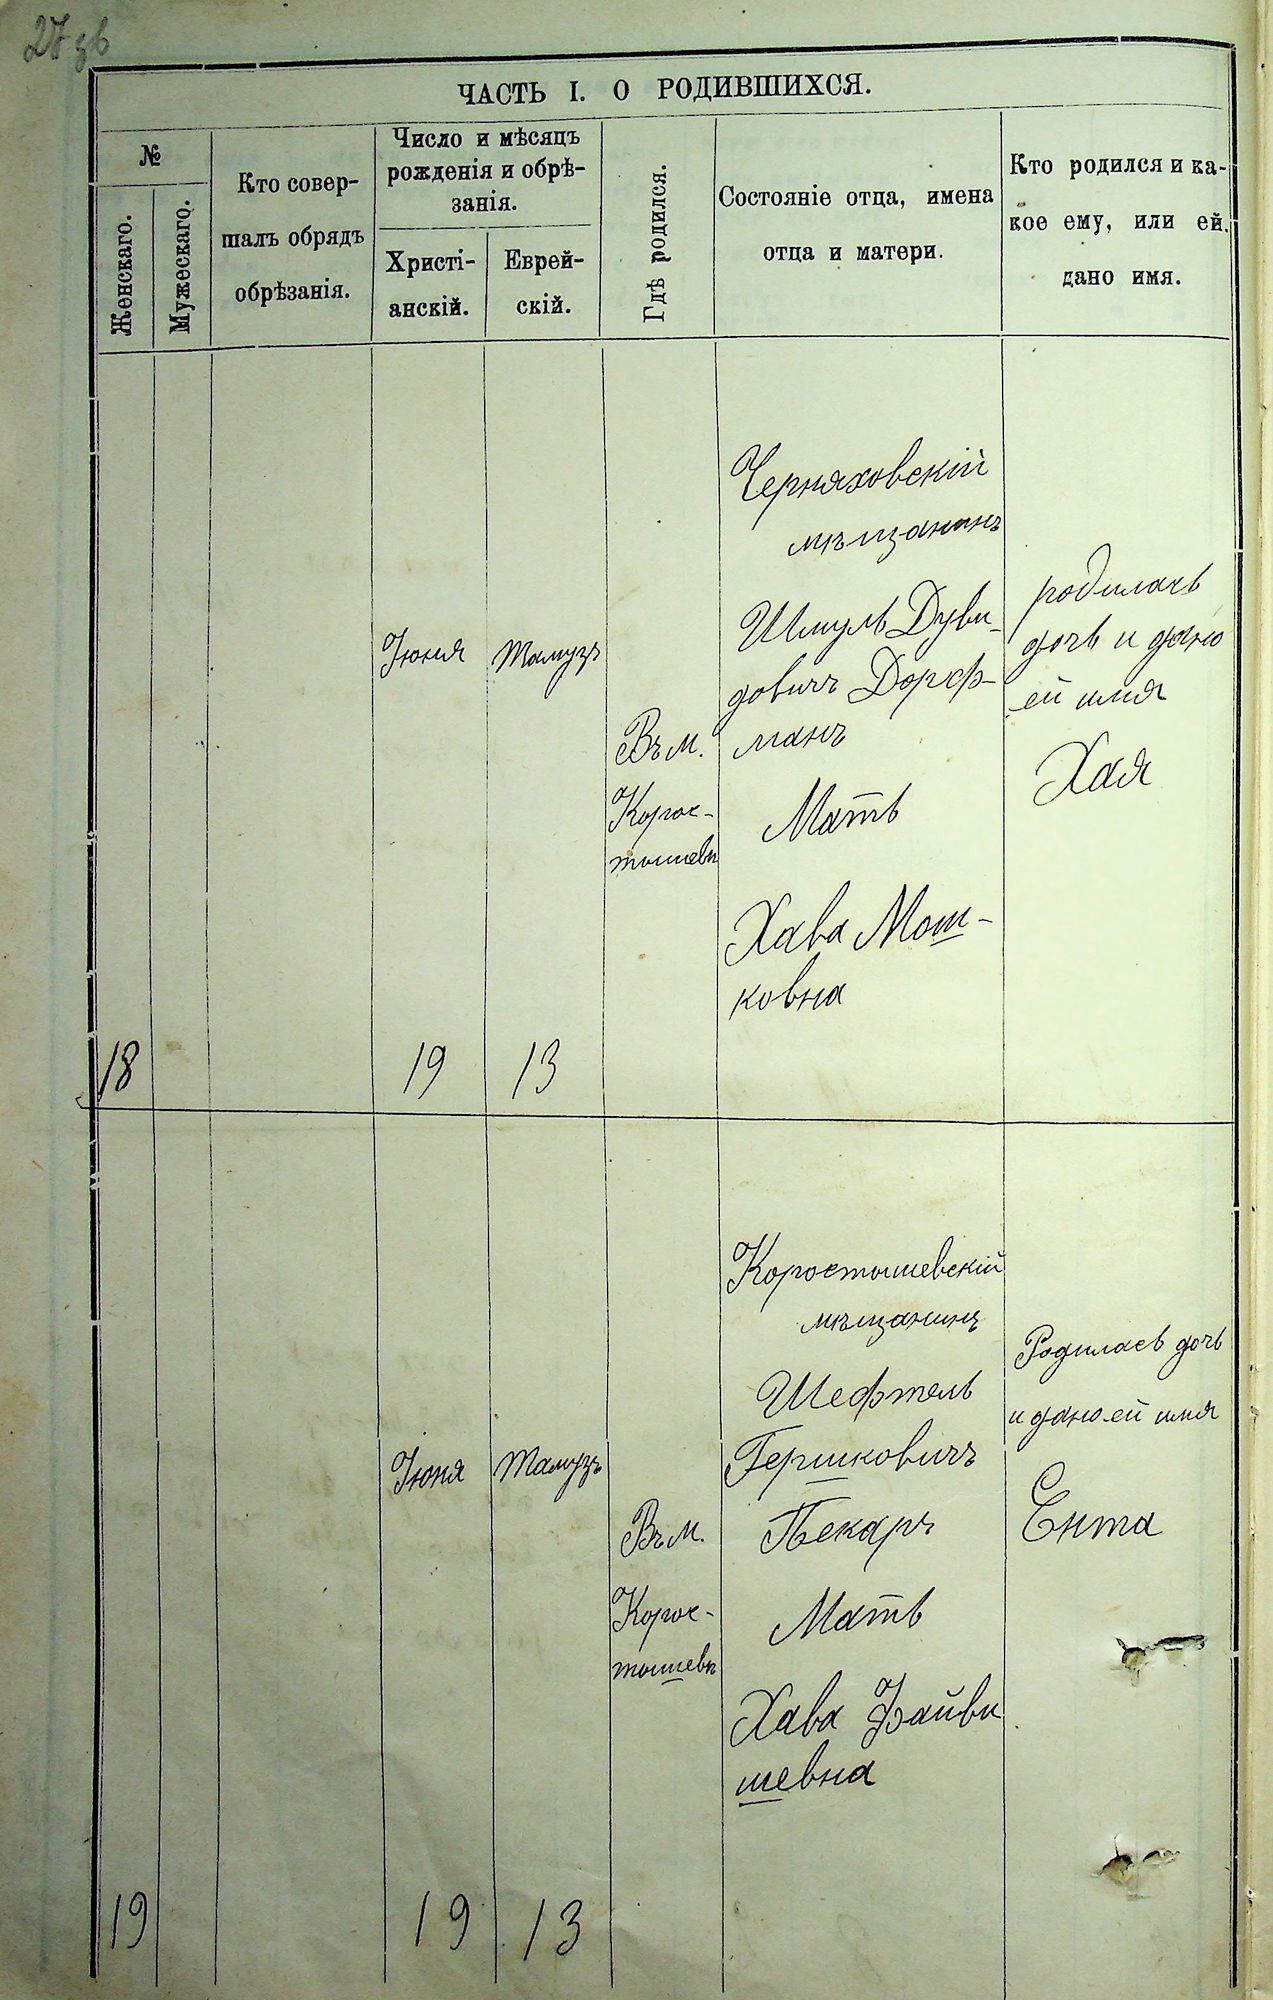 27 зв
ЧАСТЬ I. О РОДИВШИХСЯ.
№
Женскаго.
Мужескаго.
Кто совер-
шалъ обрядъ
обрѣзанія.
Число и мѣсяцъ
рожденія и обрѣ-
занія.
Христі-
анскій.
Еврей-
скій.
Гдѣ родился.
Состояніе отца, имена
отца и матери.
Кто родился и ка-
кое ему, или ей.
дано имя.
18
Іюня
19
Тамузъ
13
Въ м.
Корос-
тышевѣ
Черняховскій
мѣщанинъ
Шмуль Дуви-
довичъ Дорф-
манъ
Мать
Хава Мош-
ковна
родилась
дочь и дано
ей имя
Хая
19
Іюня
19
Тамузъ
13
Въ м.
Корос-
тышевѣ
Коростышевскій
мѣщанинъ
Шефтель
Гершковичъ
Пекаръ
Мать
Хава Файви
шевна
Родилась дочь
и дано ей имя
Ента